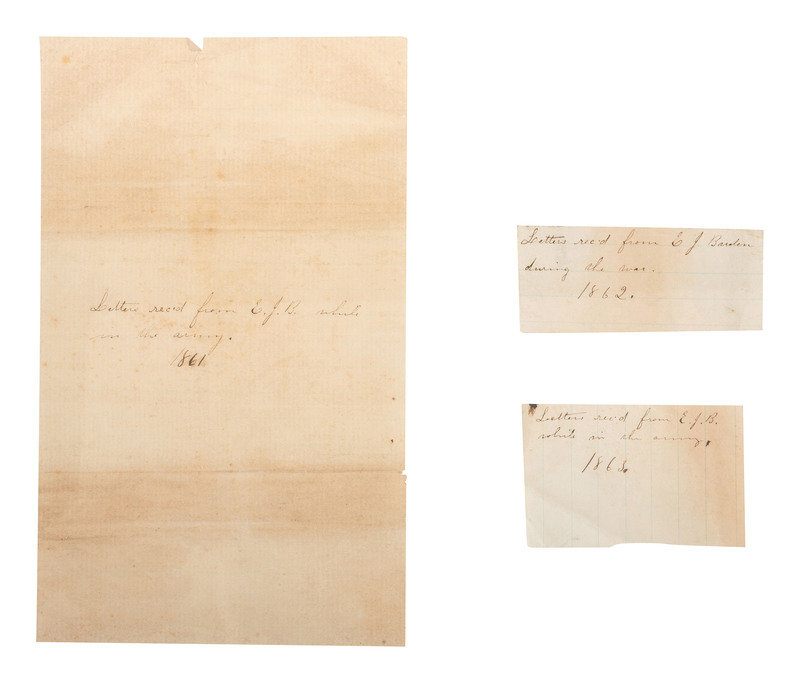 Letters rec'd from E. J. B. while
in the army.
1861
Letters rec'd from E J Barden
during the war.
1862.
Letters rec'd from E. J. B.
while in the army.
1863